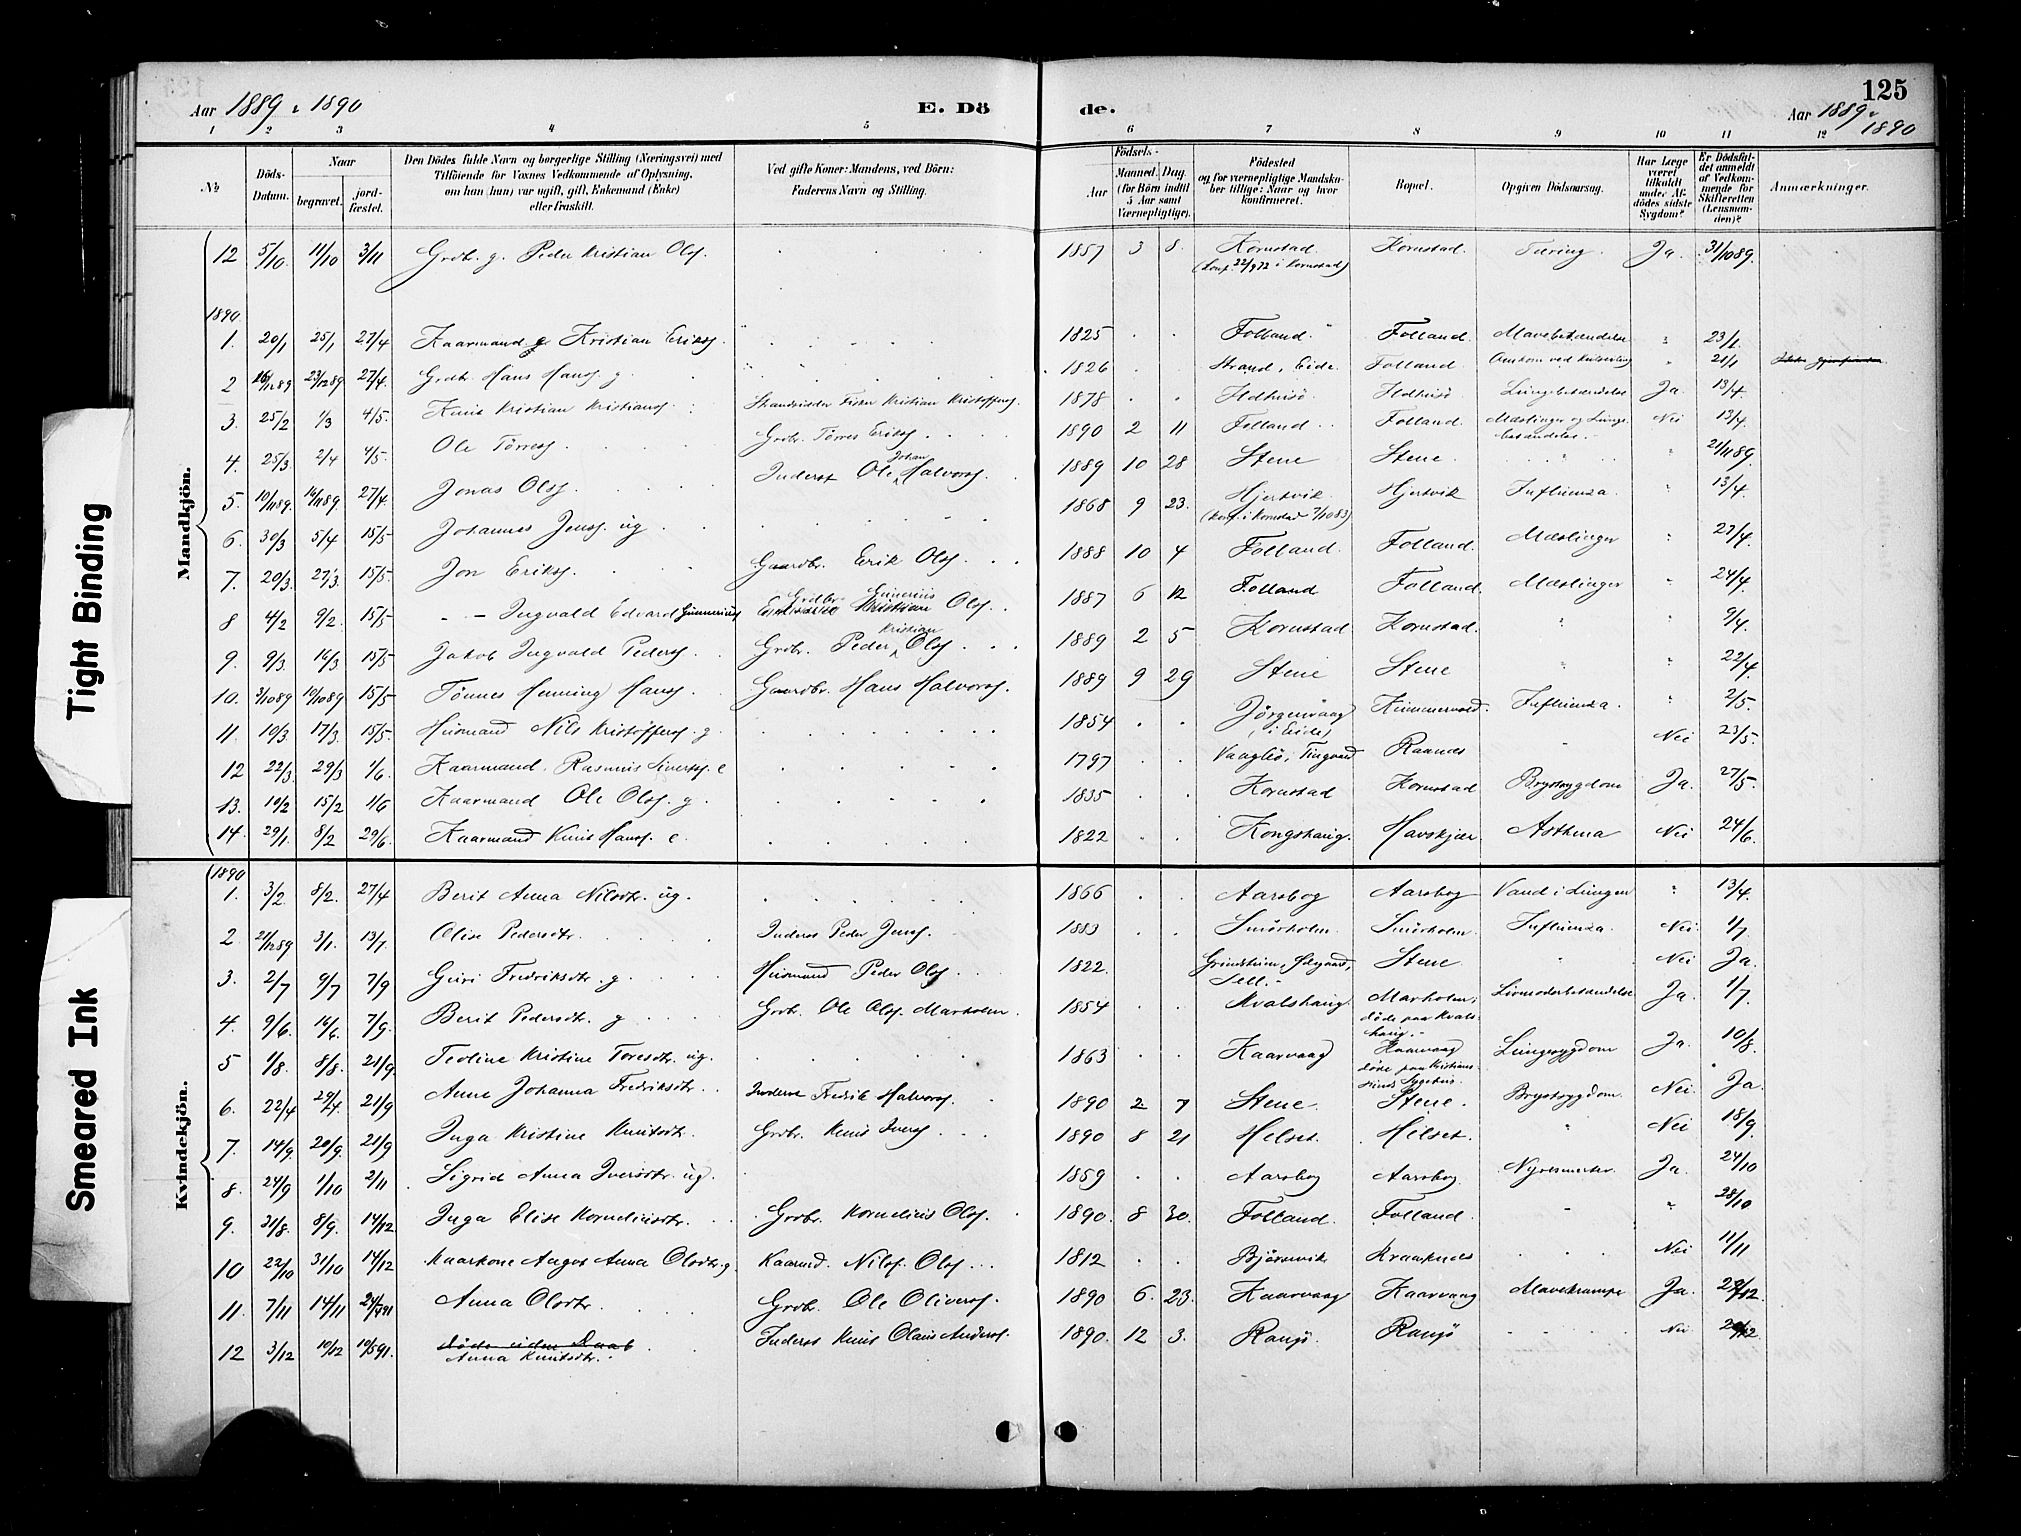 125
Aar 1889 & 1890 E. Dö de. Aar 1889 & 1890
1 2 3 4 5 6 7 8 9 10 11 12
№ Döds-Datum. Naar begravet. jord-fæstet. Den Dödes fulde Navn og borgerlige Stilling (Næringsvei) med Tilföiende for Voxnes Vedkommende af Oplysning, om han (hun) var ugift, gift, Enkemand (Enke) eller fraskilt. Ved gifte Koner: Mandens, ved Börn: Faderens Navn og Stilling. Födsels- Aar Maaned. Dag. (for Börn indtil 5 Aar samt Værnepligtige). Födested og for værnepligtige Mandskaber tillige: Naar og hvor konfirmeret. Bopæl. Opgiven Dödsaarsag. Har Læge været tilkaldt under Afdödes sidste Sygdom? Er Dödsfaldet anmeldt af Vedkommende for Skifteretten (Lensmanden)? Anmærkninger.
Mandkjön.
12 5/10. 11/10 3/11 Grdbr. g. Peder Kristian Ols. 1857 3 8. Kornstad. (konf. 22/9 72 i Kornstad) Kornstad. Tæring. Ja. 31/10 89.
1890.
1. 20/1 25/1 27/4 Kaarmand g Kristian Eriks. 1825 Folland. Folland. Mavebetændelse " 23/1.
2 16/12 89 23/12 89 27/4. Grdbr. Hans Hans. g. 1826 Strand, Eide. Folland Omkom ved " 21/1
3. 25/2 1/3 4/5. Knut Kristian Kristians. Strandsidder Fisker Kristian Kristoffers. 1878 Lungebetændelse Ja 13/4.
4. 25/3. 2/4 4/5. Ole Törres. Grdbr. Törres Eriks. 1890 2 11 Folland Folland. Mæslinger og Lungebetændelse. Nei 13/4.
5. 10/11 89. 14/11 89. 27/4. Jonas Ols. Inderst Ole Johan Halvors. 1889 10 28 Stene Stene " 21/11 89.
6. 30/3 5/4 15/5 Johannes Jens. ug 1868 9 23. Hjertvik. (konf. i Kornstad 7/10 83) Hjertvik Influenza. " 13/4.
7. 20/3. 27/3. 15/5. Jon Eriks. Gaardbr. Erik Ols. 1888 10 4 Folland. Folland. Mæslinger " 27/4.
8 4/2 9/2. 15/5 - - Ingvald Edvard Gunnerius Grdbr. Gunerius Kristian Ols. 1887 6 12 Folland Folland. Mæslinger " 24/4.
9. 9/3. 16/3 15/5 Jakob Ingvald Peders. Grdbr. Peder Kristian Ols. 1889 2 5 Kornstad. Kornstad. " " 9/4.
10. 3/10 89 10/10 89 15/5 Tönnes Henning Hans. Gaardbr. Hans Halvors. 1889 9 29 Stene Stene " " 22/4.
11. 10/3. 17/3. 15/5. Husmand Nils Kristoffers. g. 1854 Jörgenvaag (i Eide) Influenza. " 2/5.
12 22/3. 29/3 1/6. Kaarmand. Rasmus Siverts. e 1797 Vaagbö, Tingvold Raanes " Nei 23/5.
13. 10/2 15/2 1/6 Kaarmand Ole Ols. g. 1835 Kornstad Kornstad Brystsygdom Ja. 27/5.
14. 29/1. 8/2 29/6 Kaarmand Knut Hans. e. 1822 Kongshaug. Havskjær Asthma Nei 24/6.
Kvindekjön.
1890
1. 3/2. 8/2. 27/4 Berit Anna Nilsdtr. ug. 1866 Aarsbog Aarsbog Vand i Lungen " 13/4.
2. 27/12 89 3/1. 13/7. Olise Pedersdtr. Inderst Peder Jens. 1883 Smörholm. Smörholm. Influenza. Nei 1/7.
3 2/7 9/7 7/9 Guri Fredriksdtr. g Husmand Peder Ols. 1822. Stene. " Nei Ja.
4. 9/6. 14/6. 7/9. Berit Pedersdtr. g Grdbr. Ole Ols. Marholm. 1854 Kvalshaug. Marholm, döde paa Kvalshaug. Livmoderbetændelse Ja. 1/7.
5 1/8. 8/8. 21/9. Teoline Kristine Toresdtr. ug. 1863 Kaarvaag Kaarvaag döde paa Kristiansunds Sygehus. Lungesygdom Ja. 10/8.
6. 22/4 29/4. 21/9 Anne Johanna Fredriksdtr. Inderst Fredrik Halvors. 1890 2 7 Stene. Stene. Brystsygdom Nei. Ja.
7. 14/9. 20/9. 21/9 Inga Kristine Knutsdtr. Grdbr. Knut Ivers. 1890 8 21 Helset. Helset. " Nei 18/9.
8. 24/9 1/10 2/11 Sigrid Anna Iversdtr. ug. 1859 Aarsbog Aarsbog. Ja. 24/10
9. 31/8. 8/9. 14/12 Inga Elise Korneliusdtr. Grdbr. Kornelius Ols. 1890. 8 30. Folland. Folland. " " 28/10
10 22/10 31/10 14/12 Kaarkone Aagot Anna Olsdtr. g. Kaarmd. Nils. Ols. 1812 Bjørnvik Kraaknes Nei 11/11
11. 7/11 14/11 24/7 91 Anna Olsdtr. Grdbr. Ole Olivers. 1890 6. 23. Kaarvaag Kaarvaag Mavekrampe Ja. 23/12.
12 3/12 10/12 10/5 91. Döde uden Daab Anna Knutsdtr. Inderst Knut Olaus Anders. 1890. 12 3. Ransö. Ransö Nei
Tight Binding
Smeared Ink